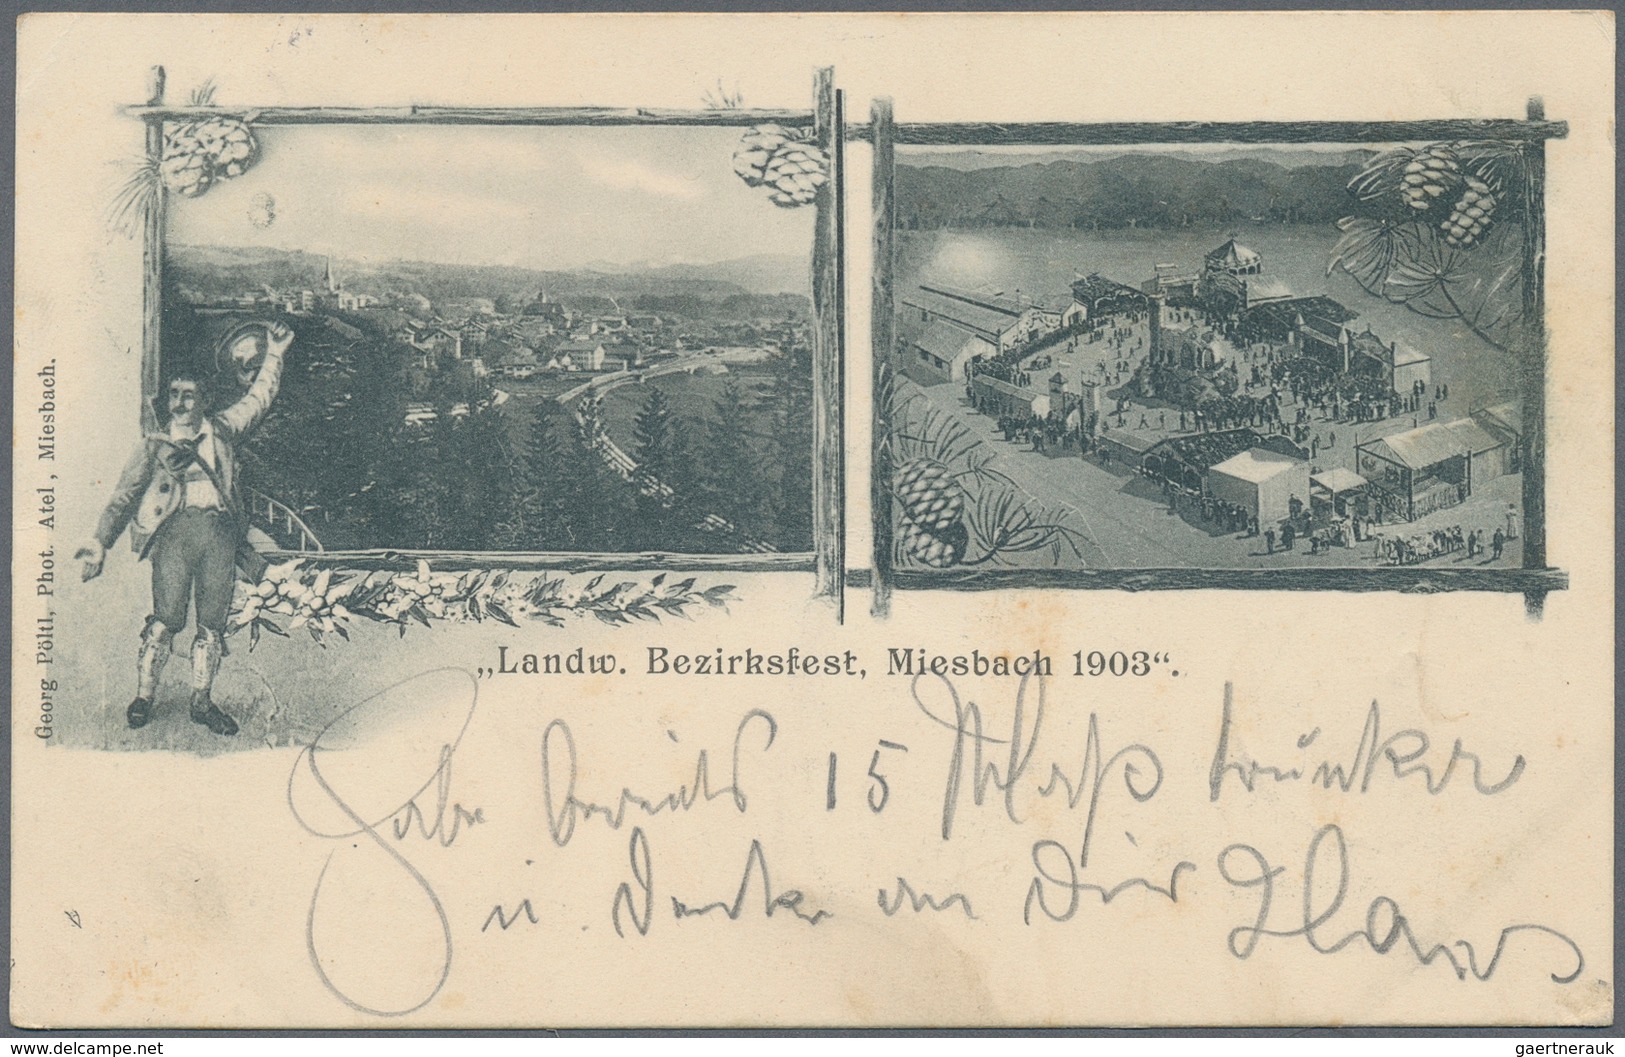 Georg Pöltl, Phot. Atel, Miesbach.
„Landw. Bezirksfest, Miesbach 1903“.
Habe bereits 15 Maß trunken
u. denke an Dir Hans
delcampe.net
gaertnerauk